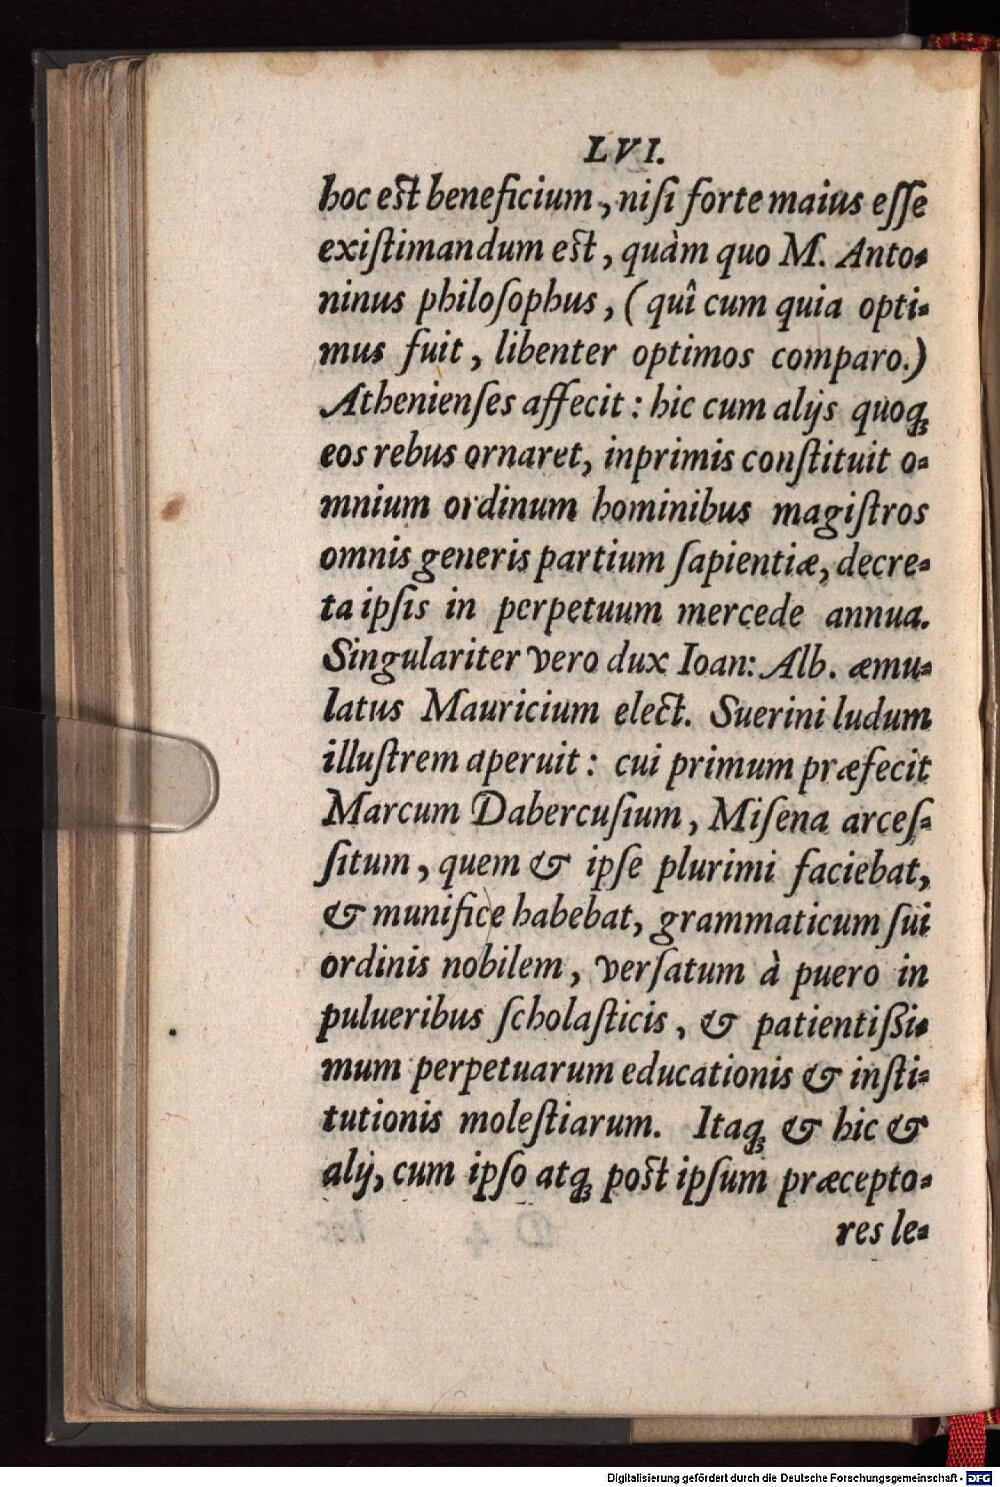 LVI.
hoc est beneficium, nisi forte maius esse
existimandum est, quàm quo M. Anto-
ninus philosophus, (quî cum quia opti-
mus fuit, libenter optimos comparo.)
Athenienses affecit: hic cum alijs quoq;
eos rebus ornaret, inprimis constituit o-
mnium ordinum hominibus magistros
omnis generis partium sapientiæ, decre-
ta ipsis in perpetuum mercede annua.
Singulariter vero dux Ioan: Alb. æmu-
latus Mauricium elect. Suerini ludum
illustrem aperuit: cui primum præfecit
Marcum Dabercusium, Misena arces-
situm, quem & ipse plurimi faciebat,
& munifice habebat, grammaticum sui
ordinis nobilem, versatum à puero in
pulueribus scholasticis, & patientißi-
mum perpetuarum educationis & insti-
tutionis molestiarum. Itaq; & hic &
alij, cum ipso atq; post ipsum præcepto-
res le-
Digitalisierung gefördert durch die Deutsche Forschungsgemeinschaft - DFG